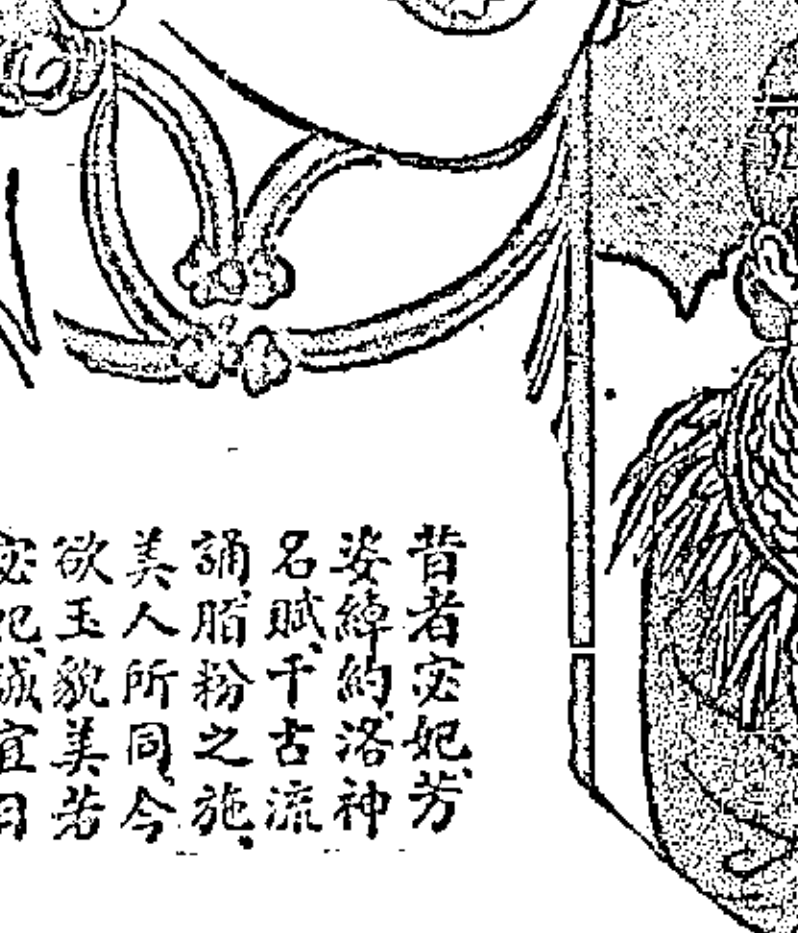 昔者宓妃芳
姿綽約洛神
名賦千古流
誦脂粉之施
美人所同今
欲玉貌美若
宓妃誠宜日